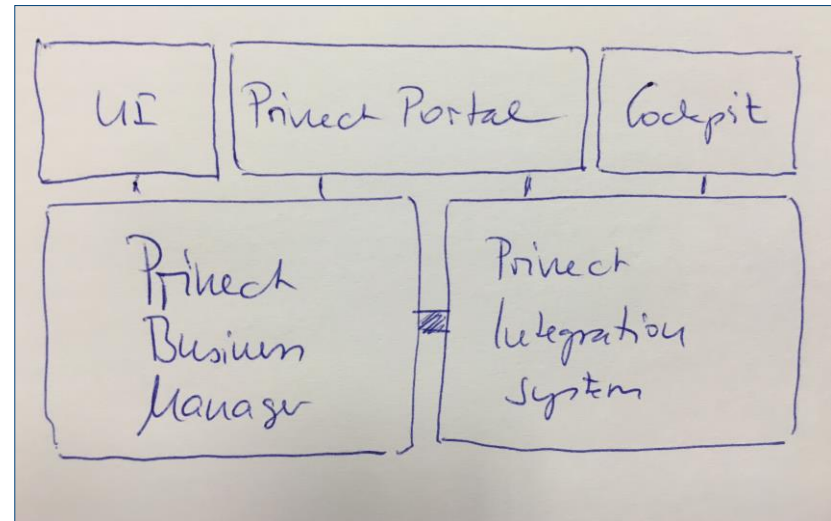 UI
Prinect Portal
Cockpit
Prinect
Business
Manager
Prinect
Integration
System